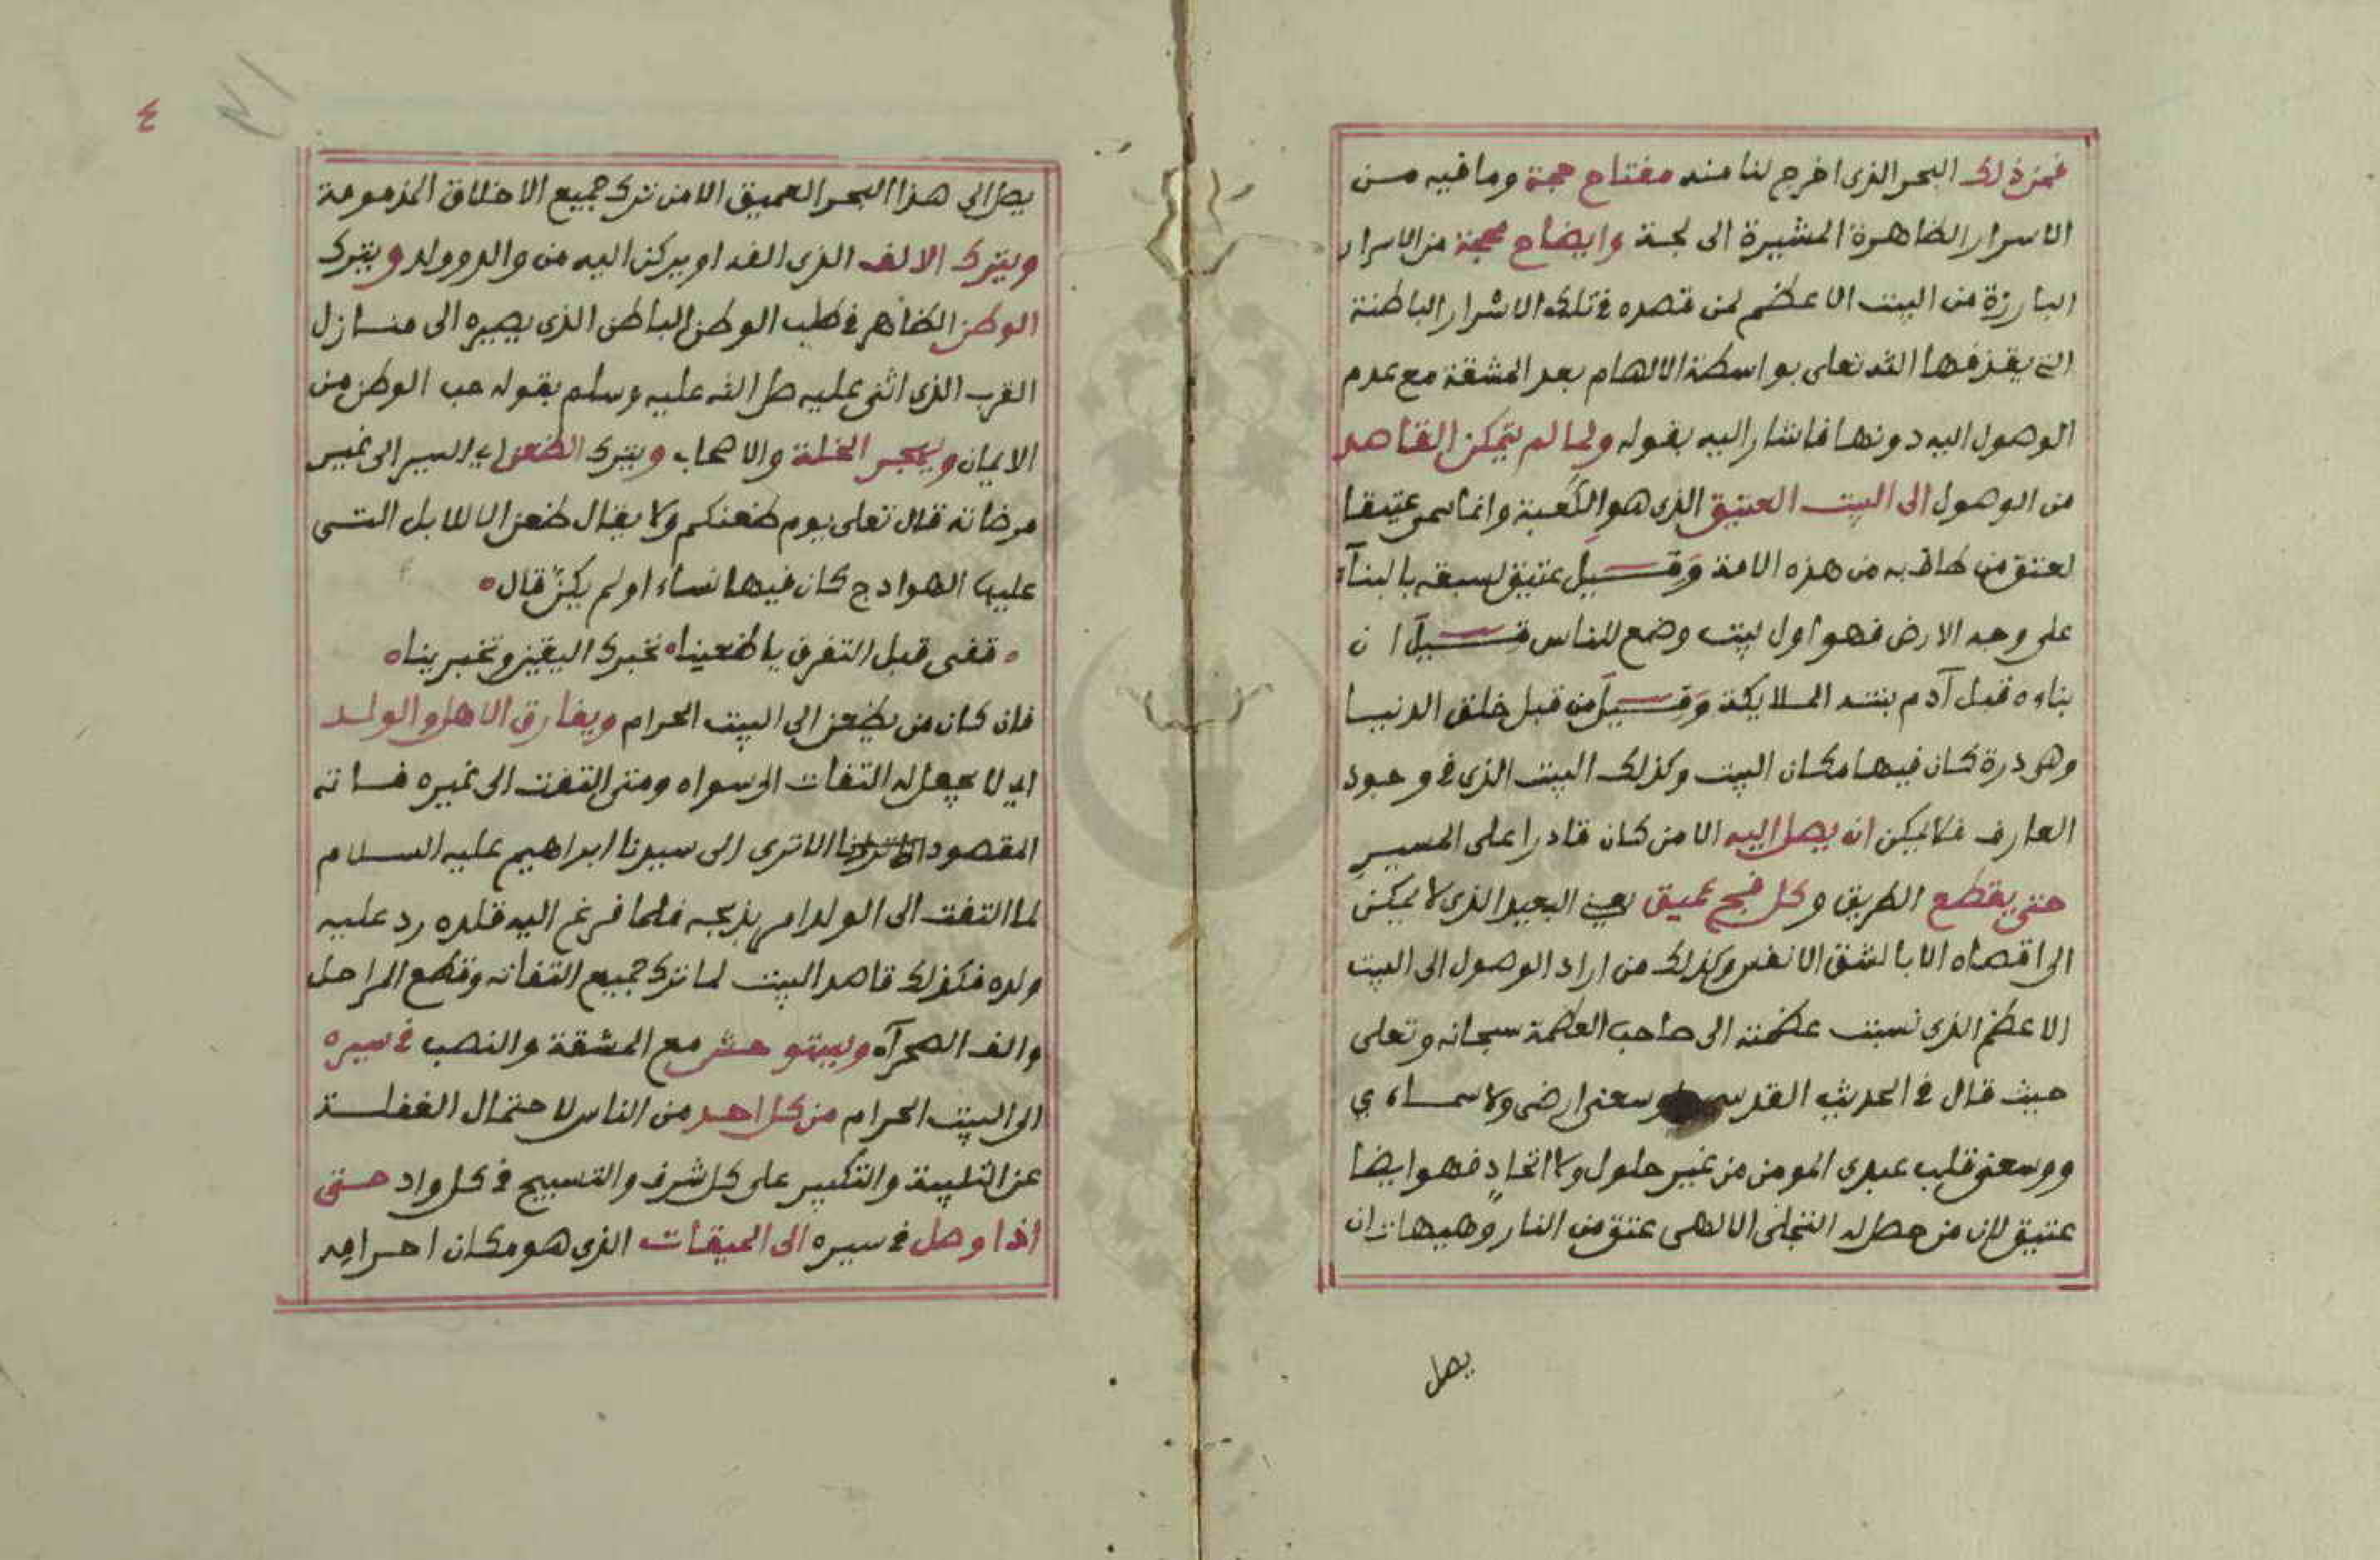 فمن ذلك البحر الذى اخرج لنا منه مفتاح حجة وما فيه من
الاسرار الظاهرة المشيرة الى لجـة وايضاح محجة من الاسرار
البارزة من البيت الاعظم لمن قصده فى تلك الاسرار الباطنة
التي يقذفها الله تعلى بواسطة الالهام بعد المشقة مع عدم
الوصول اليه دونها فاشار اليه بقوله ولما لم يتمكن القاصد
من الوصول الى البيت العتيق الذى هو الكعبة وانما سمى عتيقا
لعتق من طاف به من هذه الامة وقيل عتيق لسبقه بالبنآء
على وجه الارض فهو اول بيت وضع للناس قيل ان
بناوه قبل آدم بنته الملايكة وقيل من قبل خلق الدنيا
وهى درة كان فيها مكان البيت وكذلك البيت الذى فى وجود
العارف فلا يمكن انه يصل اليه الا من كان قادرا على المسير
حتى يقطع الطريق وكل فج عميق يعنى البعيد الذى لا يمكن
الى اقصاه الا بالشق الانفس وكذلك من اراد الوصول الى البيت
الاعظم الذى نسبت عظمته الى صاحب العظمة سبحانه وتعلى
حيث قال فى الحديث القدسى وسعنى ارضى ولا سماءي
ووسعنى قلب عبدى المومن من غير حلول ولا اتحادٍ فهو ايضا
عتيق لان من حصل له التجلى الالهى عتق من النار وهيهات ان
يصل
٤
يصل الى هذا البحر العميق الا من ترك جميع الاخلاق المذمومة
ويترك الالف الذى الفه او يركن اليه من والد وولد ويترك
الوطن الظاهر فى طلب الوطن الباطن الذى يصيره الى منازل
القرب الذى اثنى عليه صلى الله عليه وسلم بقوله حب الوطن من
الايمان ويهجر الخلة والاصحاب ويترك الظعن اي السير الى غير
مرضاته قال تعلى يوم ظعنكم ولا يقال ظعن الا للابل التى
عليها الهوادج كان فيها نساء او لم يكن قال
قفى قبل التفرق يا ظعينا نخبرك اليقين وتخبرينا
فان كان من يظعن الى البيت الحرام ويفارق الاهل والولد
اى لا يجعل له التفات الى سواه ومتى التفت الى غيره فاته
المقصود الاترى الى سيدنا ابراهيم عليه السلام
لما التفت الى الولد امر بذبحه فلما فرغ اليه قلبه رد عليه
ولده فكذلك قاصد البيت لما ترك جميع التفاته وقطع المراحل
والف الصحرآء ويستوحش مع المشقة والنصب فى سيره
الى البيت الحرام من كل احد من الناس لاحتمال الغفلة
عن التلبية والتكبير على كل شرف والتسبيح فى كل واد حتى
اذا وصل فى سيره الى الميقات الذى هو مكان احرامه